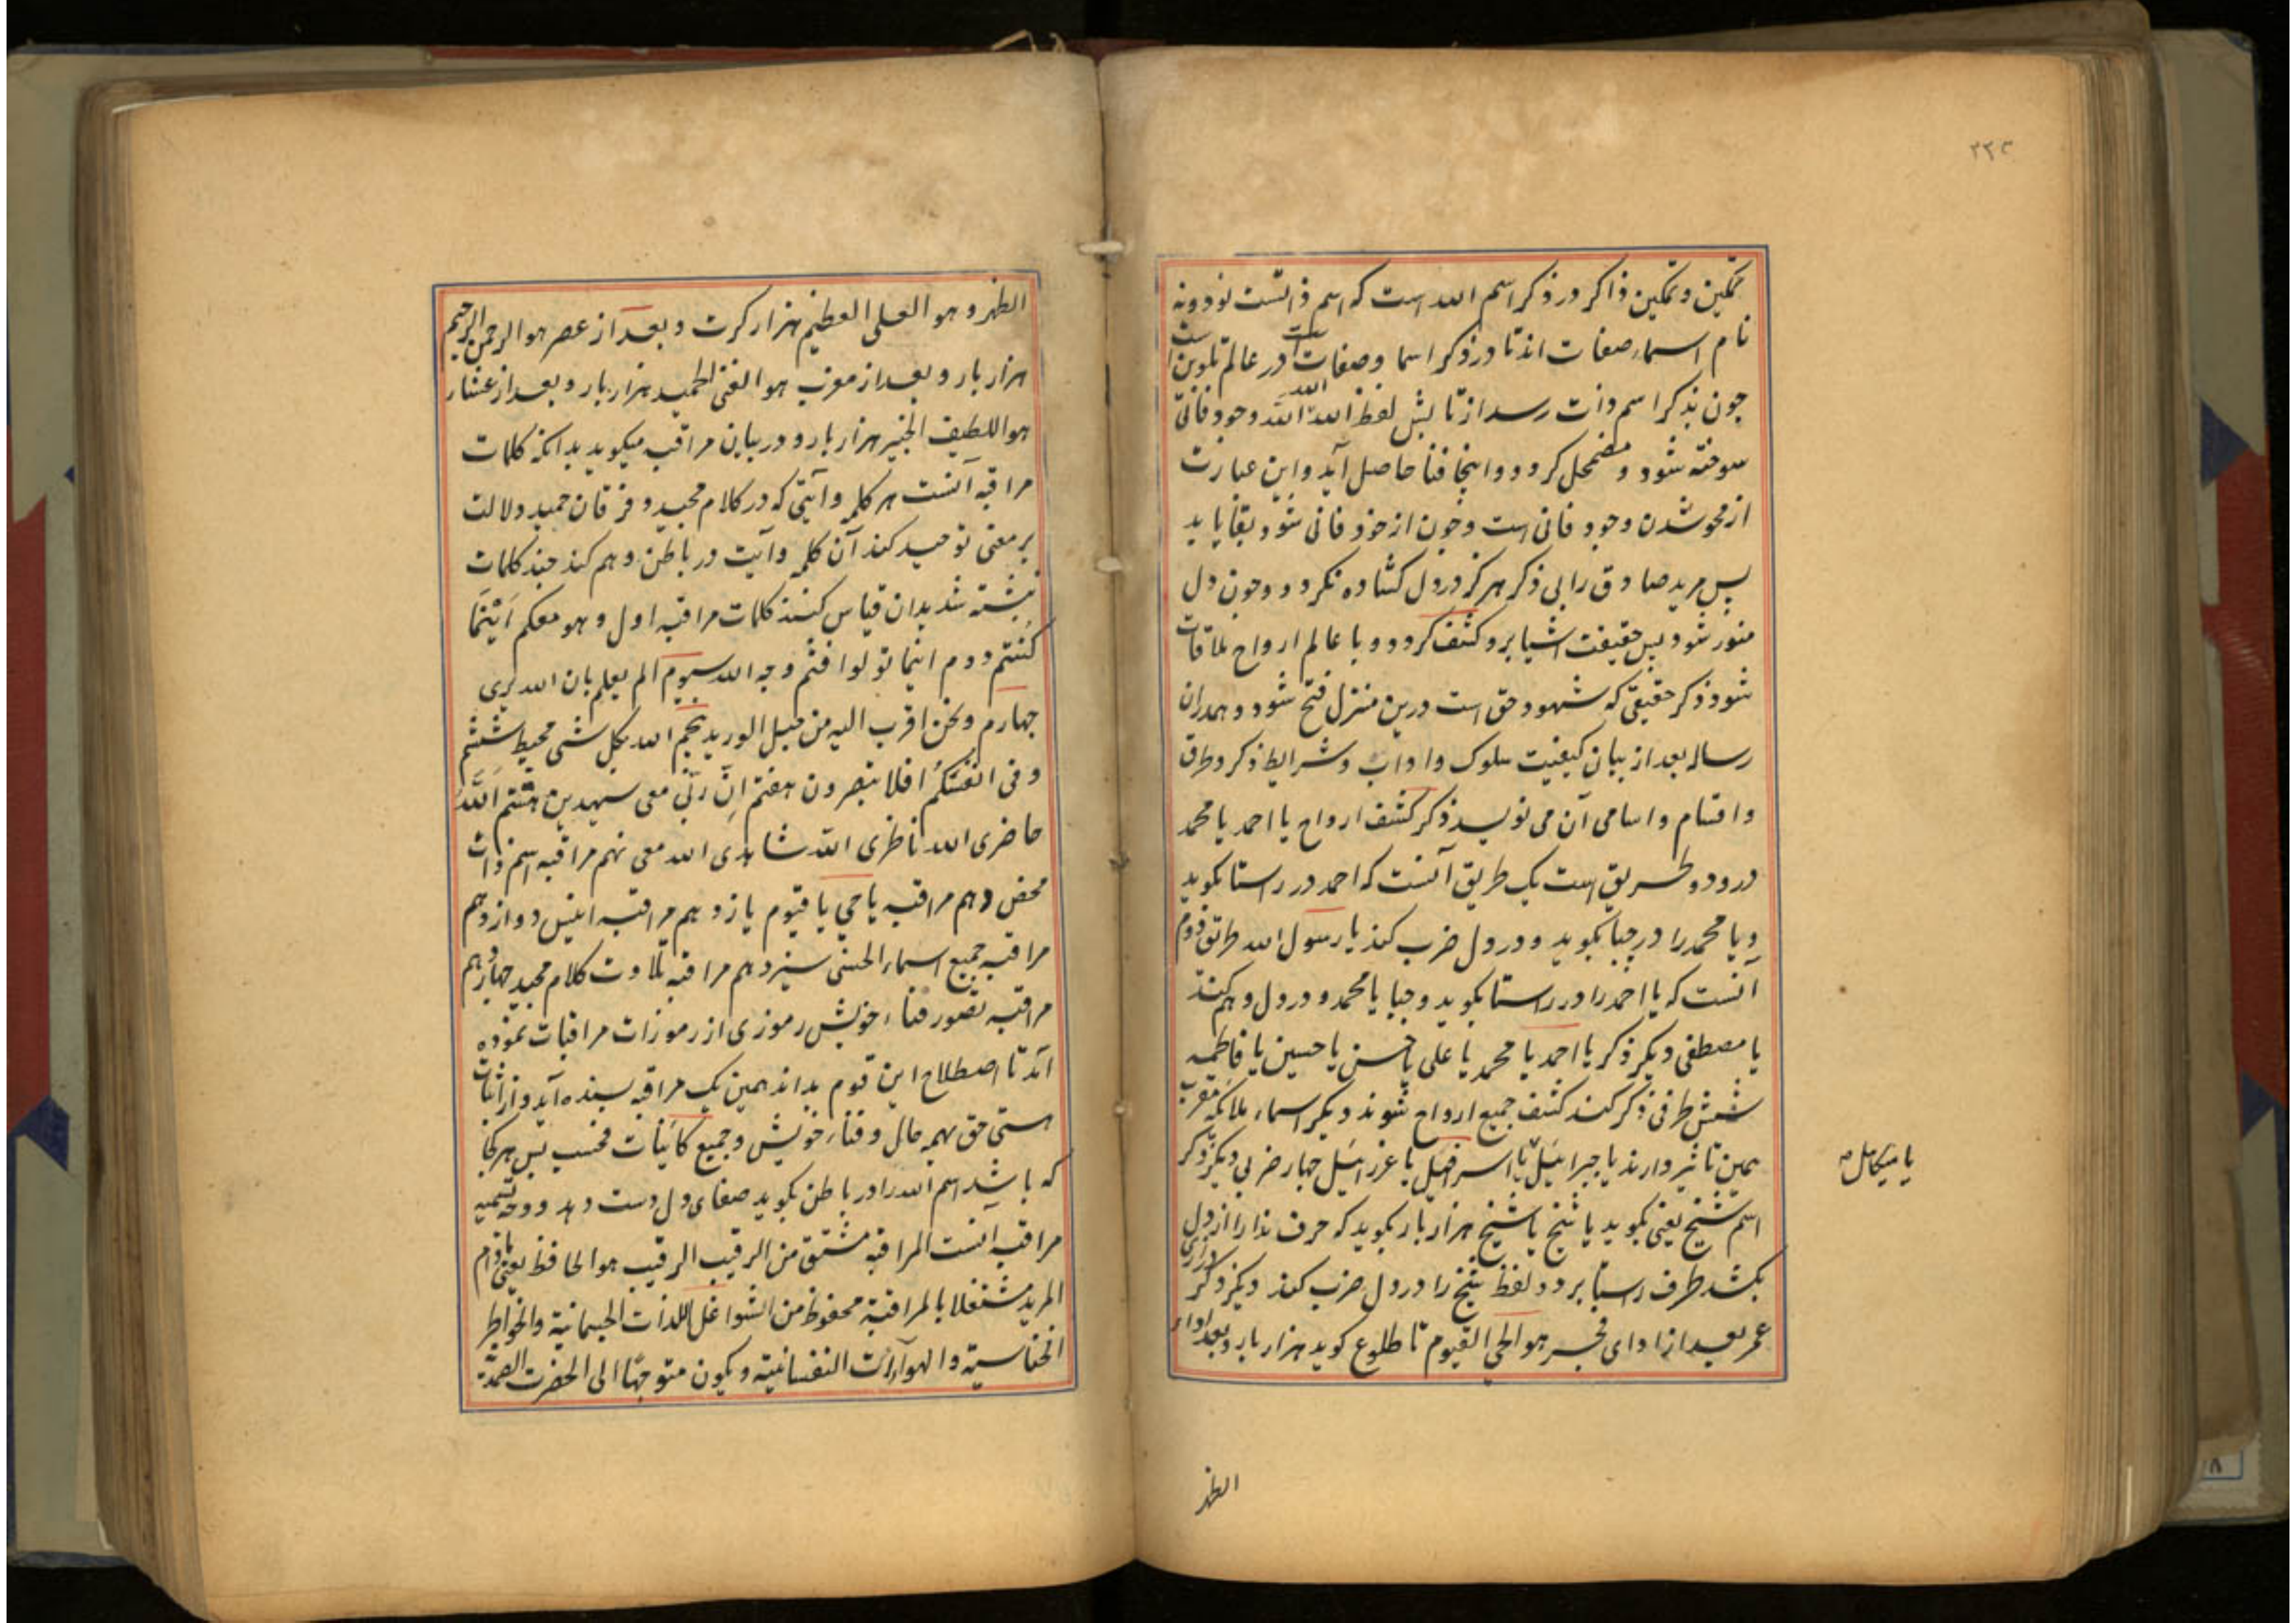 ۲۲۳
تمکین و تمکین ذاکر در ذکر اسم الله است که اسم ذاتست نود و نه
نام اسماء صفات اند تا در ذکر اسما و صفات است در عالم تلوین است
چون بذکر اسم ذات رسد از تابش لفظ الله الله الله وجود فانی
سوخته شود و مضمحل گردد و اینجا فنا حاصل آید و این عبارت
از محو شدن وجود فانی است و چون از خود فانی شود بقا یابد
پس مرید صادق را بی ذکر هرگز در دل کشاده نگردد و چون دل
منور شود پس حقیقت اشیا برو کشف گردد و با عالم ارواح ملاقات
شود ذکر حقیقی که شهود حق است درین منزل فتح شود و همدران
رساله بعد از بیان کیفیت سلوک و اداب و شرایط ذکر و طرق
و اقسام و اسامی آن می نویسد ذکر کشف ارواح یا احمد یا محمد
درو دو طریق است یک طریق آنست که احمد در راستا بگوید
و یا محمد را در چپا بگوید و در دل ضرب کند یا رسول الله طریق دوم
آنست که یا احمد را در راستا بگوید و چپا یا محمد و در دل وهم کند
یا مصطفی دیگر ذکر یا احمد یا محمد یا علی یا حسن یا حسین یا فاطمه
شش طرفی ذکر کند کشف جمیع ارواح شوند دیگر اسماء ملائکه مقرب
همین تاثیر دارند یا جبرائیل یا اسرافیل یا عزرائیل چهار ضربی دیگر ذکر
یا میکائیل
اسم شیخ یعنی بگوید یا شیخ یا شیخ هزار بار بگوید که حرف ندا را از دل
بکشد طرف راستا برد و لفظ شیخ را در دل ضرب کند دیگر ذکر
عمر بعد از ادای فجر هو الحی القیوم تا طلوع گوید هزار بار و بعد اداء
الظهر
الظهر و هو العلی العظیم هزار کرت و بعد از عصر هو الرحمن الرحیم
هزار بار و بعد از مغرب هو الغنی الحمید هزار بار و بعد از عشاء
هو اللطیف الخبیر هزار بار و در بیان مراقبه میگوید بدانکه کلمات
مراقبه آنست هر کلمه و آیتی که در کلام مجید و فرقان حمید دلالت
بر معنی توحید کند آن کلمه و آیت در باطن وهم کند چند کلمات
نبشته شد بدان قیاس کنند کلمات مراقبه اول و هو معکم اَیْنَمَا
کُنْتم دوم اینما تولوا فثم وجه الله سیوم الم یعلم بان الله یری
چهارم و نحن اقرب الیه من حبل الورید پنجم الله بکل شی محیط ششم
و فی انفسکم افلا تبصرون هفتم اِنّ ربّی معی سیهدین هشتم اَللّٰه
حاضری الله ناظری الله شاهدی الله معی نهم مراقبه اسم ذات
محض دهم مراقبه یا حی یا قیوم یازدهم مراقبه انیس دوازدهم
مراقبه جمیع اسماء الحسنی سیزدهم مراقبه تلاوت کلام مجید چهاردهم
مراقبه تصور فناء خویش رموزی از رموزات مراقبات نموده
آند تا اصطلاح این قوم بداند همین یک مراقبه بسنده آید و از اثبات
هستی حق بهمه حال و فناء خویش و جمیع کائنات فحسب پس هر کجا
که باشد اسم الله را در باطن بگوید صفای دل دست دهد و وجه تسمیه
مراقبه آنست المراقبة مشتق من الرقیب الرقیب هو الحافظ یعنی مادام
المرید مشتغلا بالمراقبة محفوظ من الشواغل اللذات الجسمانیة والخواطر
الخناسیة و الهوآءات النفسانیة و یکون متوجّها الی الحضرت الصمدیّة